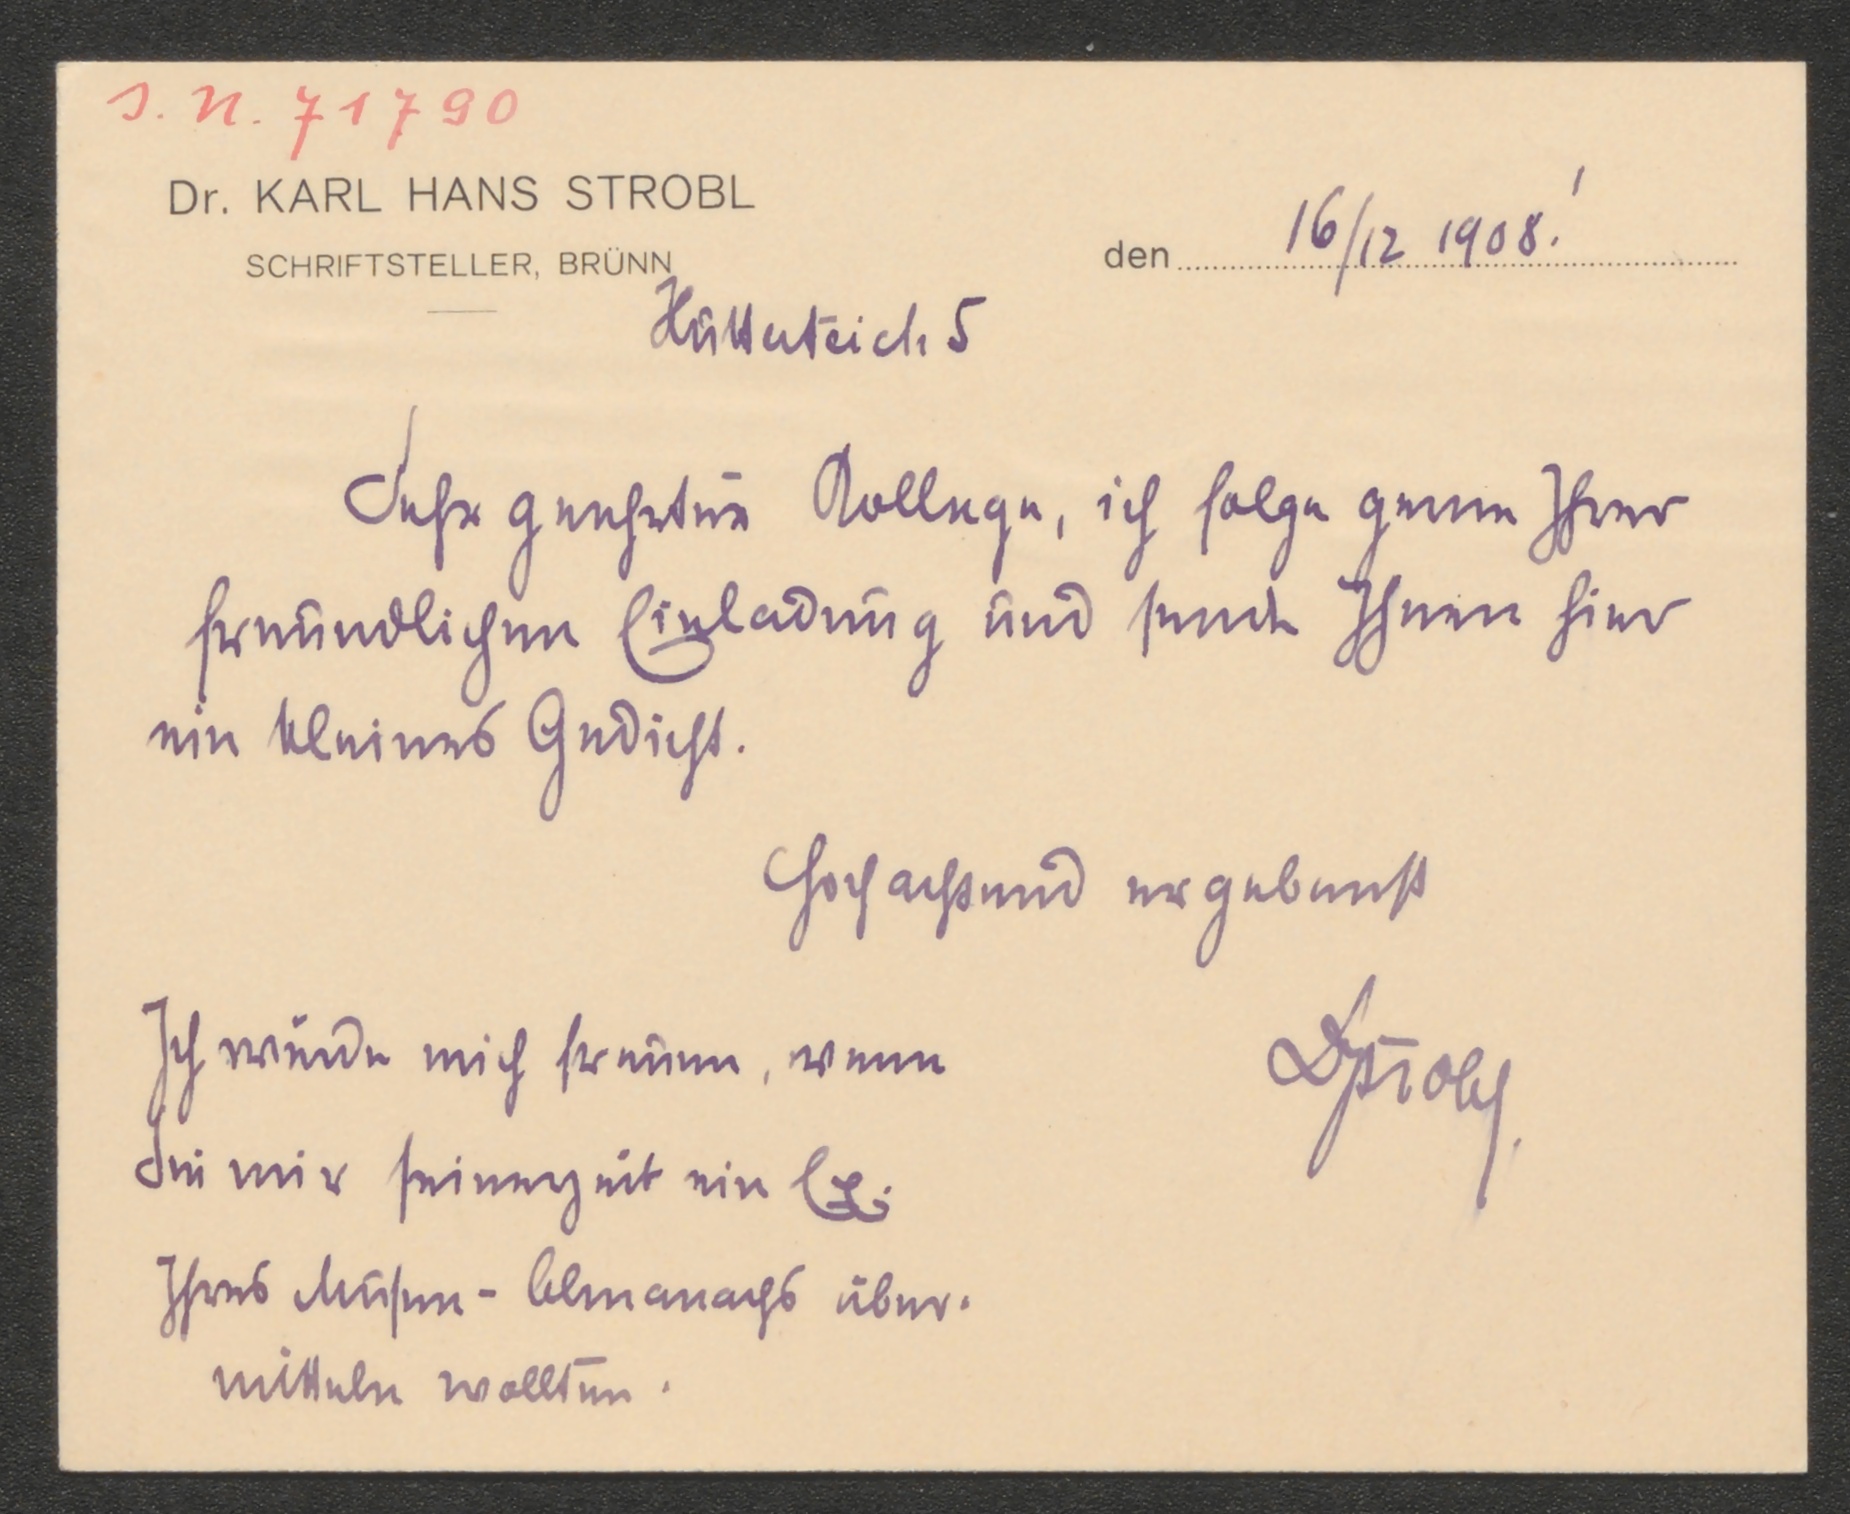 I. N. 71790
Dr. KARL HANS STROBL
SCHRIFTSTELLER, BRÜNN
den 16/12 1908!
Hütterteich 5
Sehr geehrter Kollege, ich folge gerne Ihrer
freundlichen Einladung und sende Ihnen hier
ein kleines Gedicht.
Hochachtend ergebenst
DrStrobl.
Ich würde mich freuen, wenn
Sie mir seinerzeit ein Ex.
Ihres Musen-Almanachs über-
mitteln wollten.